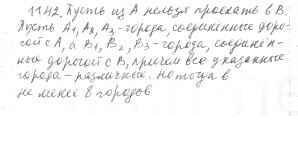 1142. Пусть из А нельзя проехать в В.
Пусть А1, А2, А3 - города, соединенные доро-
гой с А, а В1, В2, В3 - города, соединён-
ные дорогой с В, причем все указанные
города - различные. Но тогда в
не менее 8 городов